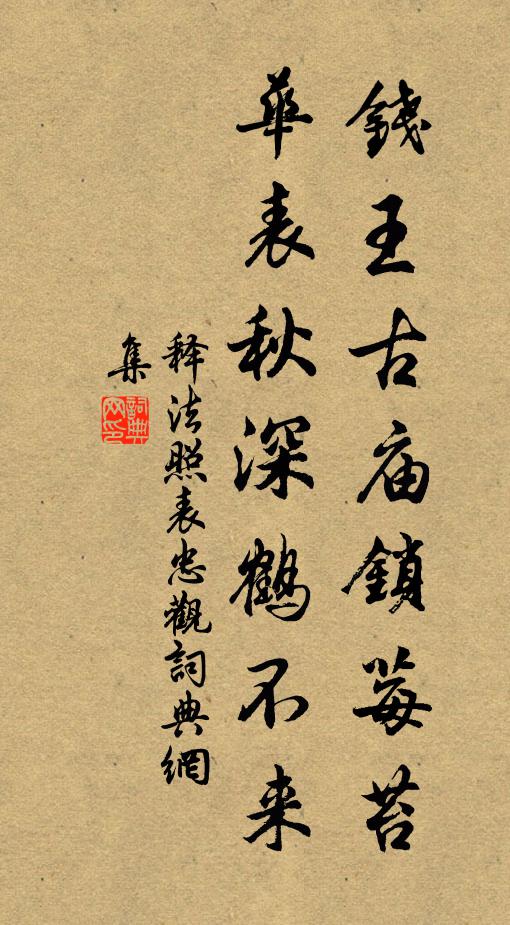 錢王古庙鎖莓苔
華表秋深鶴不来
释法照表忠觀詞典網
集
詞典網印